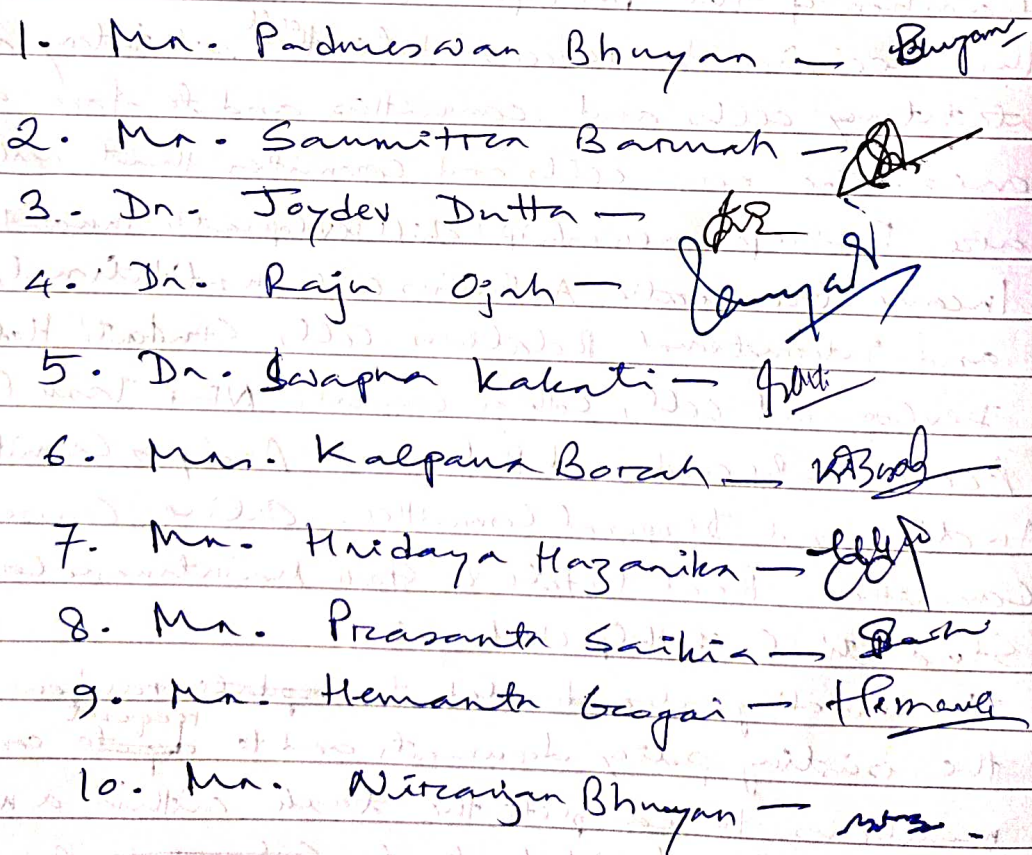 1. Mr. Padmeswar Bhuyan — Bhuyan
2. Mr. Saumitra Baruah —
3. Dr. Joydev Dutta —
4. Dr. Raju Ojah —
5. Dr. Swapna Kakati —
6. Mrs. Kalpana Borah — KBorah
7. Mr. Hridaya Hazarika —
8. Mr. Prasanta Saikia —
9. Mr. Hemanta Gogoi — Hemanta
10. Mr. Niranjan Bhuyan —